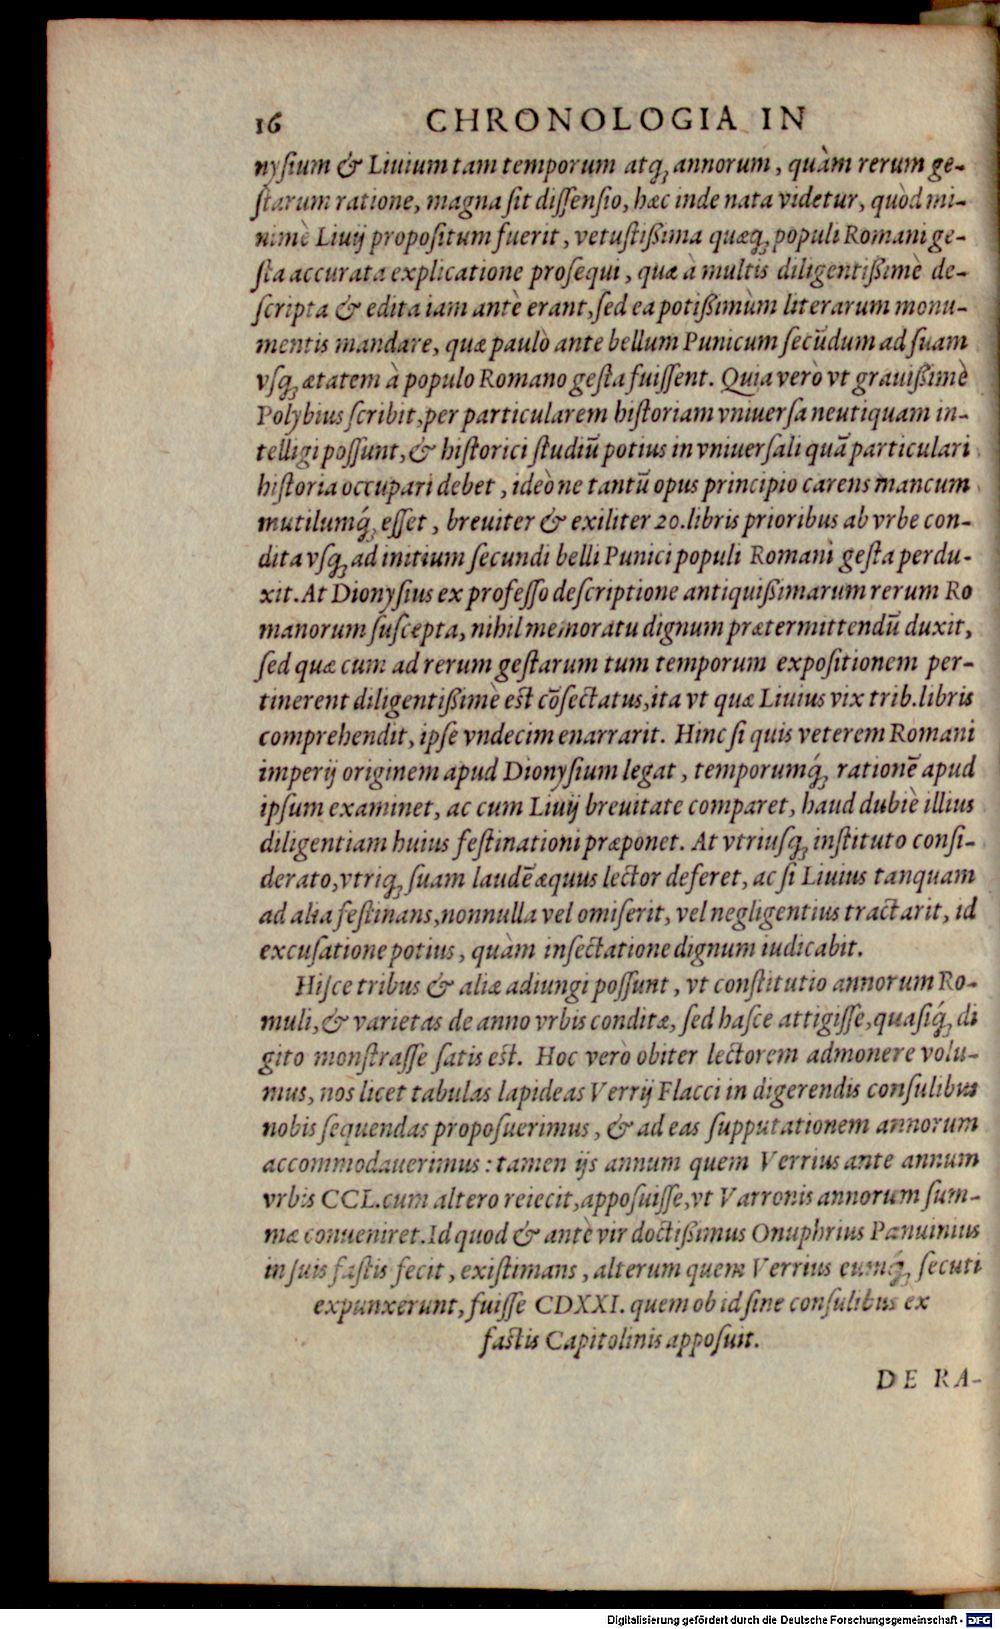 16 CHRONOLOGIA IN
nyſium & Liuium tam temporum atq; annorum, quàm rerum ge-
ſtarum ratione, magna ſit diſſenſio, hæc inde nata videtur, quòd mi-
nimè Liuij propoſitum fuerit, vetuſtißima quæq; populi Romani ge-
ſta accurata explicatione proſequi, quæ à multis diligentißimè de-
ſcripta & edita iam antè erant, ſed ea potißimùm literarum monu-
mentis mandare, quæ paulò ante bellum Punicum ſecūdum ad ſuam
vſq; ætatem à populo Romano geſta fuiſſent. Quia verò vt grauißimè
Polybius ſcribit, per particularem hiſtoriam vniuerſa neutiquam in-
telligi poſſunt, & hiſtorici ſtudiū potius in vniuerſali quā particulari
hiſtoria occupari debet, ideò ne tantū opus principio carens mancum
mutilumq́; eſſet, breuiter & exiliter 20. libris prioribus ab vrbe con-
dita vſq; ad initium ſecundi belli Punici populi Romani geſta perdu-
xit. At Dionyſius ex profeſſo deſcriptione antiquißimarum rerum Ro
manorum ſuſcepta, nihil memoratu dignum prætermittendū duxit,
ſed quæ cum ad rerum geſtarum tum temporum expoſitionem per-
tinerent diligentißimè eſt cōſectatus, ita vt quæ Liuius vix trib. libris
comprehendit, ipſe vndecim enarrarit. Hinc ſi quis veterem Romani
imperij originem apud Dionyſium legat, temporumq́; rationē apud
ipſum examinet, ac cum Liuij breuitate comparet, haud dubiè illius
diligentiam huius feſtinationi præponet. At vtriuſq; inſtituto conſi-
derato, vtriq; ſuam laudē æquus lector deferet, ac ſi Liuius tanquam
ad alia feſtinans, nonnulla vel omiſerit, vel negligentius tractarit, id
excuſatione potius, quàm inſectatione dignum iudicabit.
Hiſce tribus & aliæ adiungi poſſunt, vt conſtitutio annorum Ro-
muli, & varietas de anno vrbis conditæ, ſed haſce attigiſſe, quaſiq́; di
gito monſtraſſe ſatis eſt. Hoc verò obiter lectorem admonere volu-
mus, nos licet tabulas lapideas Verrij Flacci in digerendis conſulibus
nobis ſequendas propoſuerimus, & ad eas ſupputationem annorum
accommodauerimus: tamen ijs annum quem Verrius ante annum
vrbis CCL. cum altero reiecit, appoſuiſſe, vt Varronis annorum ſum-
mæ conueniret. Id quod & antè vir doctißimus Onuphrius Panuinius
in ſuis faſtis fecit, exiſtimans, alterum quem Verrius eumq́; ſecuti
expunxerunt, fuiſſe CDXXI. quem ob id ſine conſulibus ex
faſtis Capitolinis appoſuit.
DE RA-
Digitalisierung gefördert durch die Deutsche Forschungsgemeinschaft - DFG